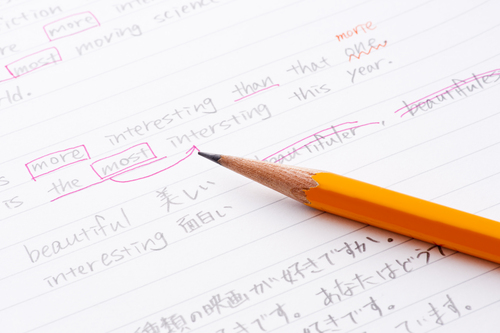 more
most moving science
ld.
movie
more interesting than that one.
is the most intersting this year.
beautifuler, beautifulest
beautiful 美しい
interesting 面白い
種類の映画が好きですか。
好きです。あなたはどう
います。